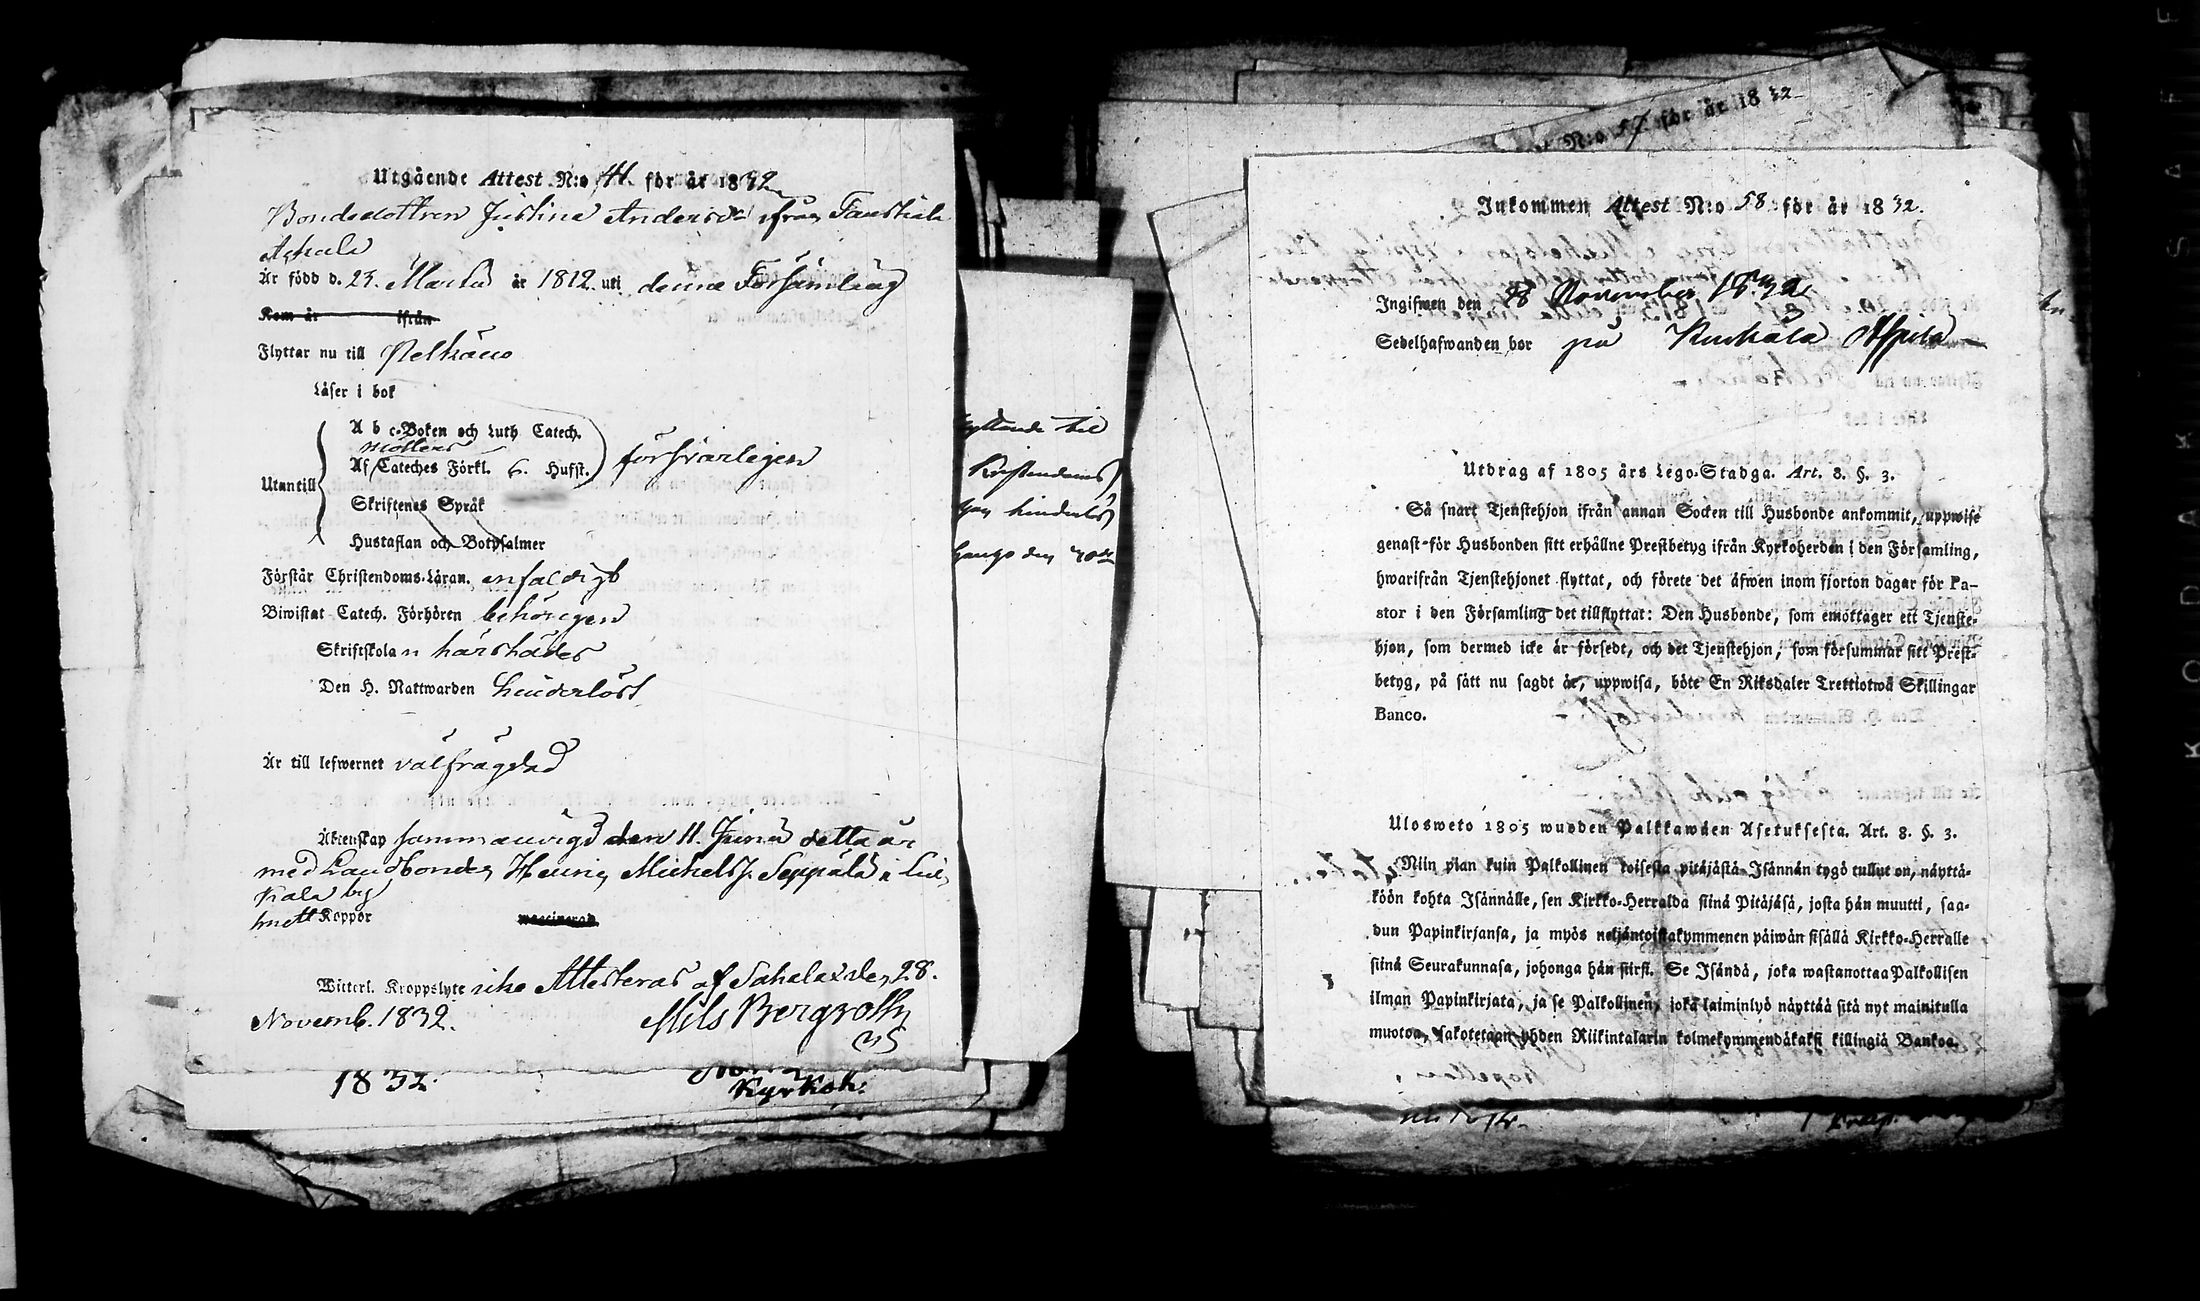 Utgående Attest N:o 41. för år 1832.
Bondedottren Justina Andersdr ifrån Taustiala
Är född d. 23. Martii år 1812. uti denna Församling
Kom år ifrån
Flyttar nu till Pelkäne
Läser i bok
Utantill
A b c-Boken och Luth Catech.
Möllers
Af Cateches Förkl. 6. Hufst. försvarligen
Skriftenes Språk
Hustaflan och Botpsalmer
Förstår Christendoms-Läran. enfaldigt
Biwistat Catech. Förhören behörigen
Skriftskolan härstädes
Den H. Nattwarden hinderlöst
Är till lefwernet välfrägdad
Äktenskap sammanvigd den 11. Junii detta år
med Landbonden Henric Michelss. Seppälä i Lui
kala by
haft Koppor vaccinerad
Witterl. Kroppslyte icke Attesteras af Sahalax den 28.
Novemb. 1832. Nils Bergroth
1832.
Kyrkoh.
flyttande til
Kristendoms
hinderlös
den 20de
N:o 57 för år 1832
Inkommen Attest N:o 58. för år 1832.
Ingifwen den 28 November 1832
Sedelhafwanden bor på Ruokala Seppälä
Utdrag af 1805 års Lego-Stadga. Art. 8. §. 3.
Så snart Tjenstehjon ifrån annan Socken till Husbonde ankommit, uppwise
genast för Husbonden sitt erhållne Prestbetyg ifrån Kyrkoherden i den Församling,
hwarifrån Tjenstehjonet flyttat, och förete det äfwen inom fjorton dagar för Pa-
stor i den Församling det tillflyttat: Den Husbonde, som emottager ett Tjenste-
hjon, som dermed icke är försedt, och det Tjenstehjon, som försummar sitt Prest-
betyg, på sätt nu sagdt är, uppwisa, böte En Riksdaler Trettiotwå Skillingar
Banco.
Ulosweto 1805 wuoden Palkkawäen Asetuksesta. Art. 8. §. 3.
Niin pian kuin Palkollinen toisesta pitäjästä Isännän tygö tullut on, näyttä-
köön kohta Isännälle, sen Kirkko-Herralda siinä Pitäjäsä, josta hän muutti, saa-
dun Papinkirjansa, ja myös neljäntoistakymmenen päiwän sisällä Kirkko-Herralle
siinä Seurakunnasa, johonga hän siirsi. Se Isändä, joka wastanottaa Palkollisen
ilman Papinkirjata, ja se Palkollinen, joka laiminlyö näyttää sitä nyt mainitulla
muotoa, sakotetaan yhden Riikintalarin kolmekymmendäkaksi killingiä Bankoa.
KODAK SAFE